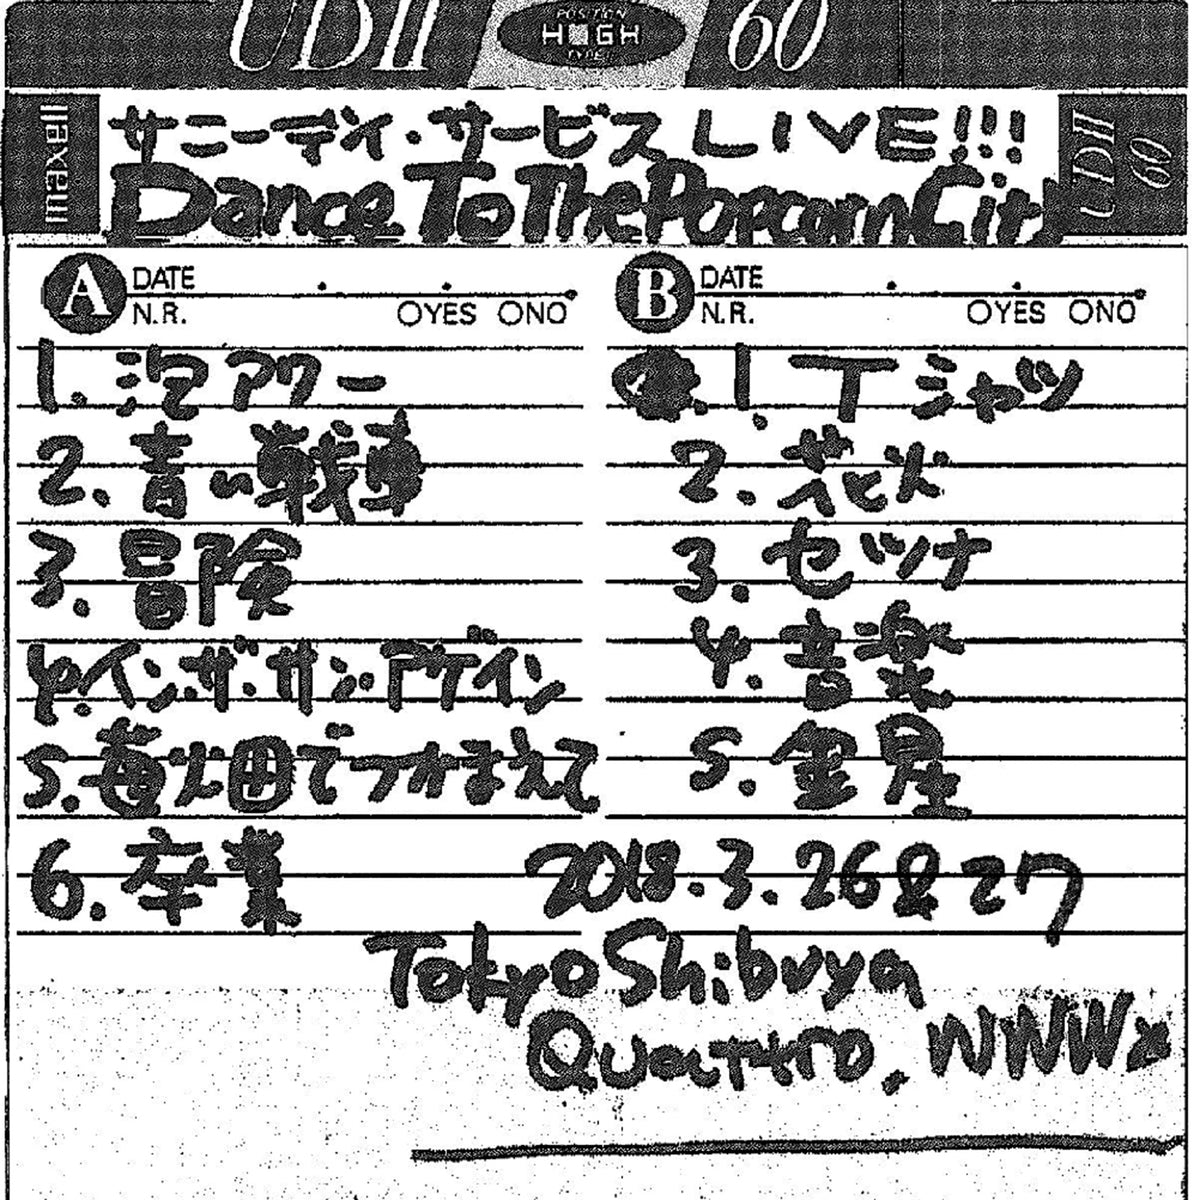 UDII POSITION HIGH 60
maxell
サニーデイ・サービス LIVE!!!
Dance To The Popcorn City
UDII 60
A DATE
N.R. YES NO
1. 泡アワー
2. 青い戦車
3. 冒険
4. イン・ザ・サン・アゲイン
5. 苺畑でつかまえて
6. 卒業
B DATE
N.R. YES NO
1. Tシャツ
2. 花火
3. セツナ
4. 音楽
5. 金星
2018.3.26&27
Tokyo Shibuya
Quattro, WWWx